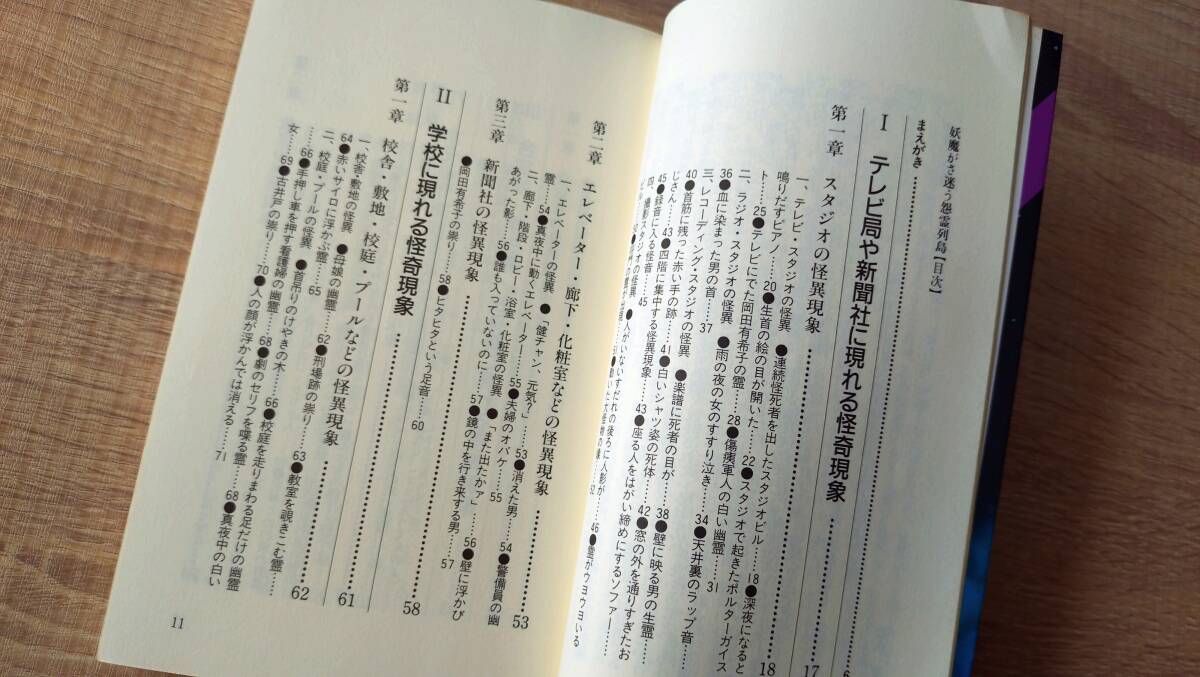 妖魔がさ迷う怨霊列島【目次】
まえがき……………
Ⅰ テレビ局や新聞社に現れる怪奇現象……………17
第一章 スタジオの怪異現象……………18
一、テレビ・スタジオの怪異 ●連続怪死者を出したスタジオビル……18●深夜になると
鳴りだすピアノ……20●生首の絵の目が開いた……22●スタジオで起きたポルターガイス
ト……25●テレビにでた岡田有希子の霊……28●傷痍軍人の白い幽霊……31
二、ラジオ・スタジオの怪異 ●雨の夜の女のすすり泣き……34●天井裏のラップ音……
36●血に染まった男の首……37
三、レコーディング・スタジオの怪異 ●楽譜に死者の目が……38●壁に映る男の生霊……
40●首筋に残った赤い手の跡……41●白いシャツ姿の死体……42●窓の外を通りすぎたお
じさん……43●四階に集中する怪異現象……43●座る人をはがい締めにするソファー……
45●録音に入る怪音……45
四、撮影スタジオの怪異 ●人がいないすだれの後ろに人影が……46●霊がウヨウヨいる
第二章 エレベーター・廊下・化粧室などの怪異現象……………53
一、エレベーターの怪異 ●「健チャン、元気?」……53●消えた男……54●警備員の幽
霊……54●真夜中に動くエレベーター……55●夫婦のオバケ……55
二、廊下・階段・ロビー・浴室・化粧室の怪異 ●「また出たかァ」……56●壁に浮かび
あがった影……56●誰も入っていないのに……57●鏡の中を行き来する男……57
第三章 新聞社の怪異現象……………58
●岡田有希子の祟り……58●ヒタヒタという足音……60
Ⅱ 学校に現れる怪奇現象……………61
第一章 校舎・敷地・校庭・プールなどの怪異現象……………62
一、校舎・敷地の怪異 ●母娘の幽霊……62●刑場跡の祟り……63●教室を覗きこむ霊……
64●赤いサイロに浮かぶ霊……65
二、校庭・プールの怪異 ●首吊りのけやきの木……66●校庭を走りまわる足だけの幽霊
……66●手押し車を押す看護婦の幽霊……68●劇のセリフを喋る霊……68●真夜中の白い
女……69●古井戸の祟り……70●人の顔が浮かんでは消える……71
11